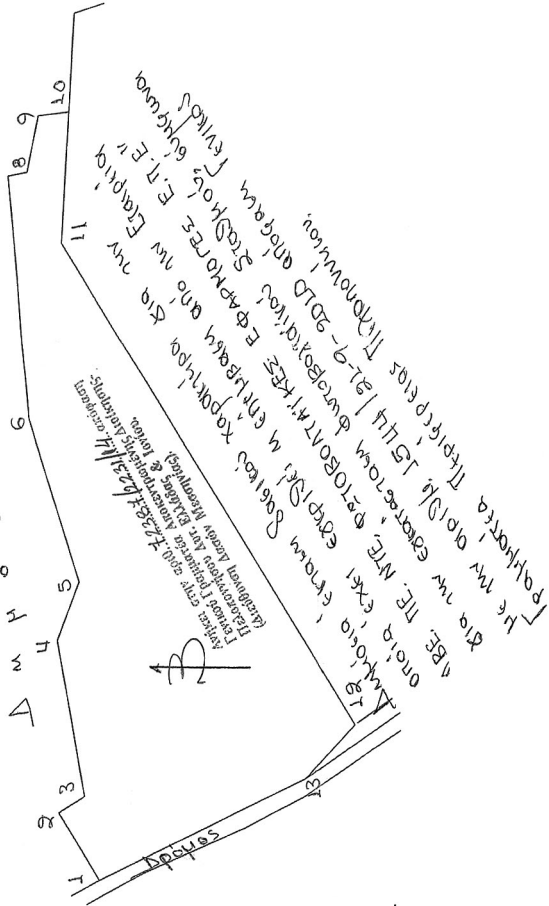 Δ η μ ο
1
2
3
4
5
6
8
9
10
11
12
13
Δρόμος
Β
Ανήκει στην αριθ. 7.2387/2231/14 απόφαση
Γενικού Γραμματέα Αποκεντρωμένης Διοίκησης
Πελοποννήσου Δυτ. Ελλάδας & Ιονίου.
(Διεύθυνση Δασών Μεσσηνίας)
Δημόσια έκταση δασικού χαρακτήρα για την Εταιρεία
οποία έχει εγκριθεί η επέμβαση από την
"ΑΒΕ. ΠΕ. ΝΤΕ. ΦΩΤΟΒΟΛΤΑΪΚΕΣ ΕΦΑΡΜΟΓΕΣ Ε.Π.Ε"
για την εγκατάσταση φωτοβολταϊκού σταθμού, σύμφωνα
με την αριθμ. 1544/21-9-2010 απόφαση Γενικού
Γραμματέα Περιφέρειας Πελοποννήσου.